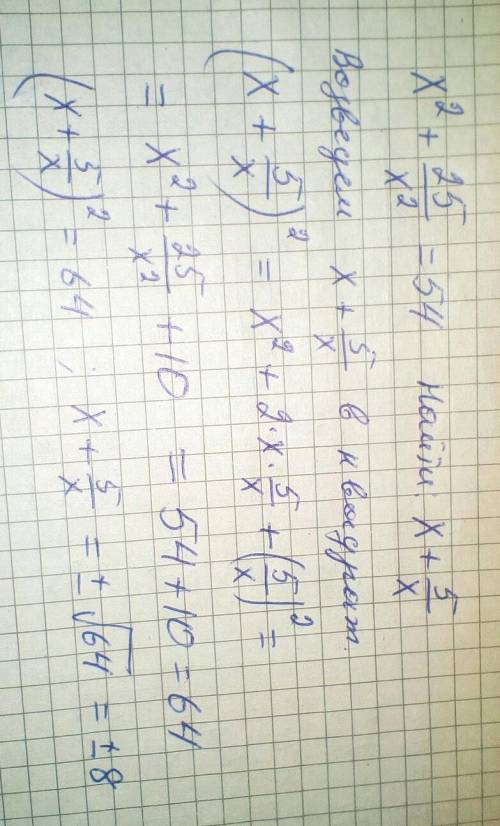 x² + 25/x² = 54 Найти: x + 5/x
Возведем x + 5/x в квадрат.
(x + 5/x)² = x² + 2·x·5/x + (5/x)² =
= x² + 25/x² + 10 = 54 + 10 = 64
(x + 5/x)² = 64 ; x + 5/x = ±√64 = ±8